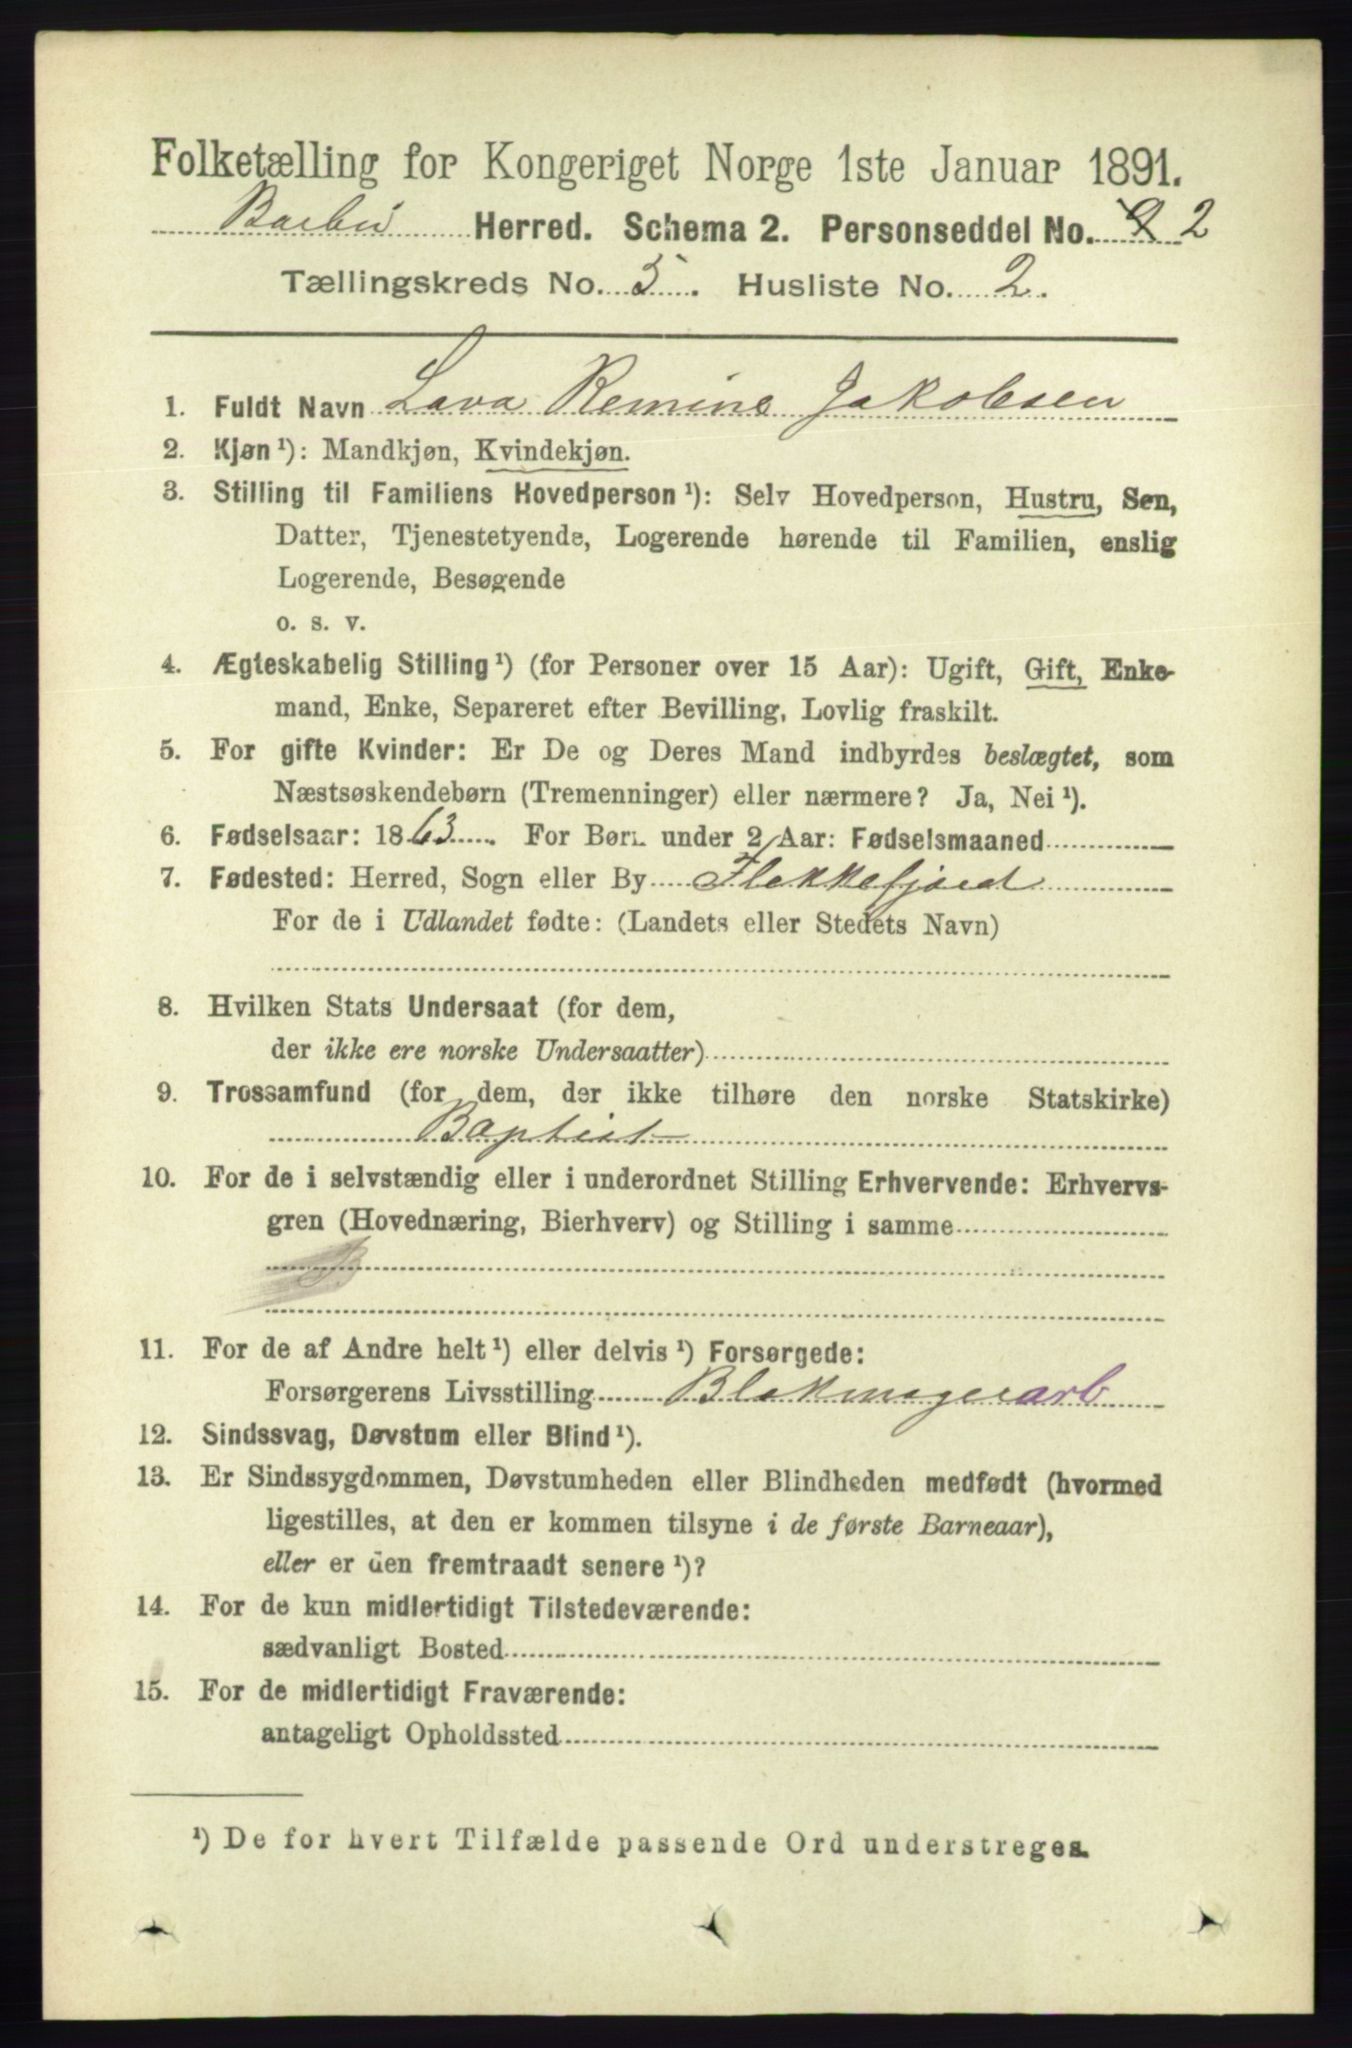 Folketælling for Kongeriget Norge 1ste Januar 1891.
Barbu Herred. Schema 2. Personseddel No. 2
Tællingskreds No. 5. Husliste No. 2.
1. Fuldt Navn Lava Remine Jakobsen
2. Kjøn ¹): Mandkjøn, Kvindekjøn.
3. Stilling til Familiens Hovedperson ¹): Selv Hovedperson, Hustru, Søn,
Datter, Tjenestetyende, Logerende hørende til Familien, enslig
Logerende, Besøgende
o. s. v.
4. Ægteskabelig Stilling ¹) (for Personer over 15 Aar): Ugift, Gift, Enke-
mand, Enke, Separeret efter Bevilling, Lovlig fraskilt.
5. For gifte Kvinder: Er De og Deres Mand indbyrdes beslægtet, som
Næstsøskendebørn (Tremenninger) eller nærmere? Ja, Nei ¹).
6. Fødselsaar: 1863. For Børn under 2 Aar: Fødselsmaaned
7. Fødested: Herred, Sogn eller By Flekkefjord
For de i Udlandet fødte: (Landets eller Stedets Navn)
8. Hvilken Stats Undersaat (for dem,
der ikke ere norske Undersaatter)
9. Trossamfund (for dem, der ikke tilhøre den norske Statskirke)
Baptist
10. For de i selvstændig eller i underordnet Stilling Erhvervende: Erhvervs-
gren (Hovednæring, Bierhverv) og Stilling i samme
11. For de af Andre helt ¹) eller delvis ¹) Forsørgede:
Forsørgerens Livsstilling Blokmagerarb
12. Sindssvag, Døvstum eller Blind ¹).
13. Er Sindssygdommen, Døvstumheden eller Blindheden medfødt (hvormed
ligestilles, at den er kommen tilsyne i de første Barneaar),
eller er den fremtraadt senere ¹)?
14. For de kun midlertidigt Tilstedeværende:
sædvanligt Bosted
15. For de midlertidigt Fraværende:
antageligt Opholdssted
¹) De for hvert Tilfælde passende Ord understreges.